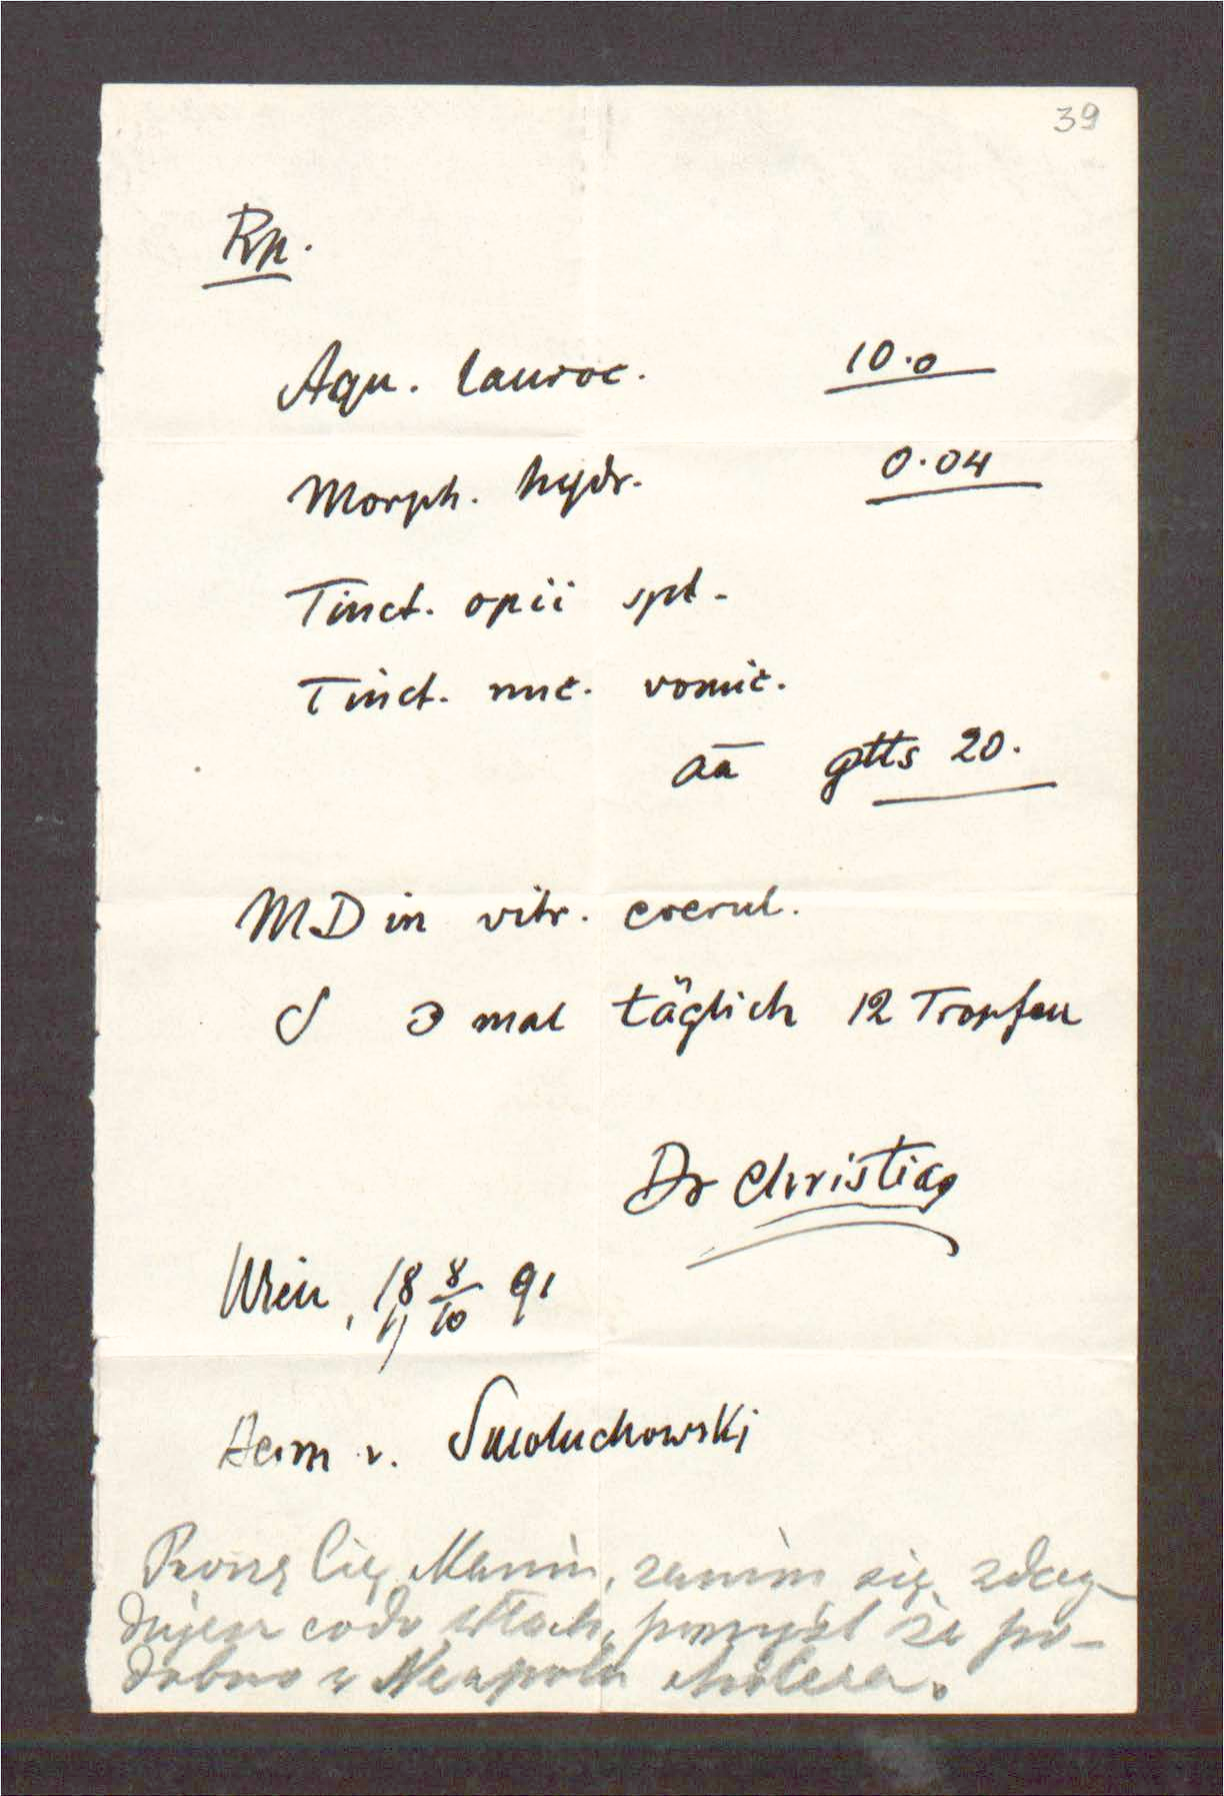 39
Rp.
Aqu. lauroc. 10.0
Morph. hydr. 0.04
Tinct. opii spl.
Tinct. nuc. vomic.
aa gtts 20.
MD in vitr. coerul.
S 3 mal täglich 12 Tropfen
Dr Christian
Wien, 18 8/10 91
Herrn v. Smoluchowski
Proszę Cię, Maniu, zanim się zdecy-
dujesz co do Włoch, pomyśl że po-
dobno w Neapolu cholera.